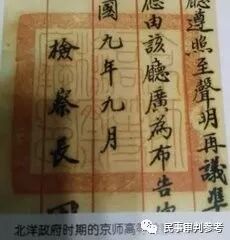 廳遵照至聲明再議準
應由該廳廣為布告
國九年九月
檢察長
北洋政府时期的京师高等
民事审判参考